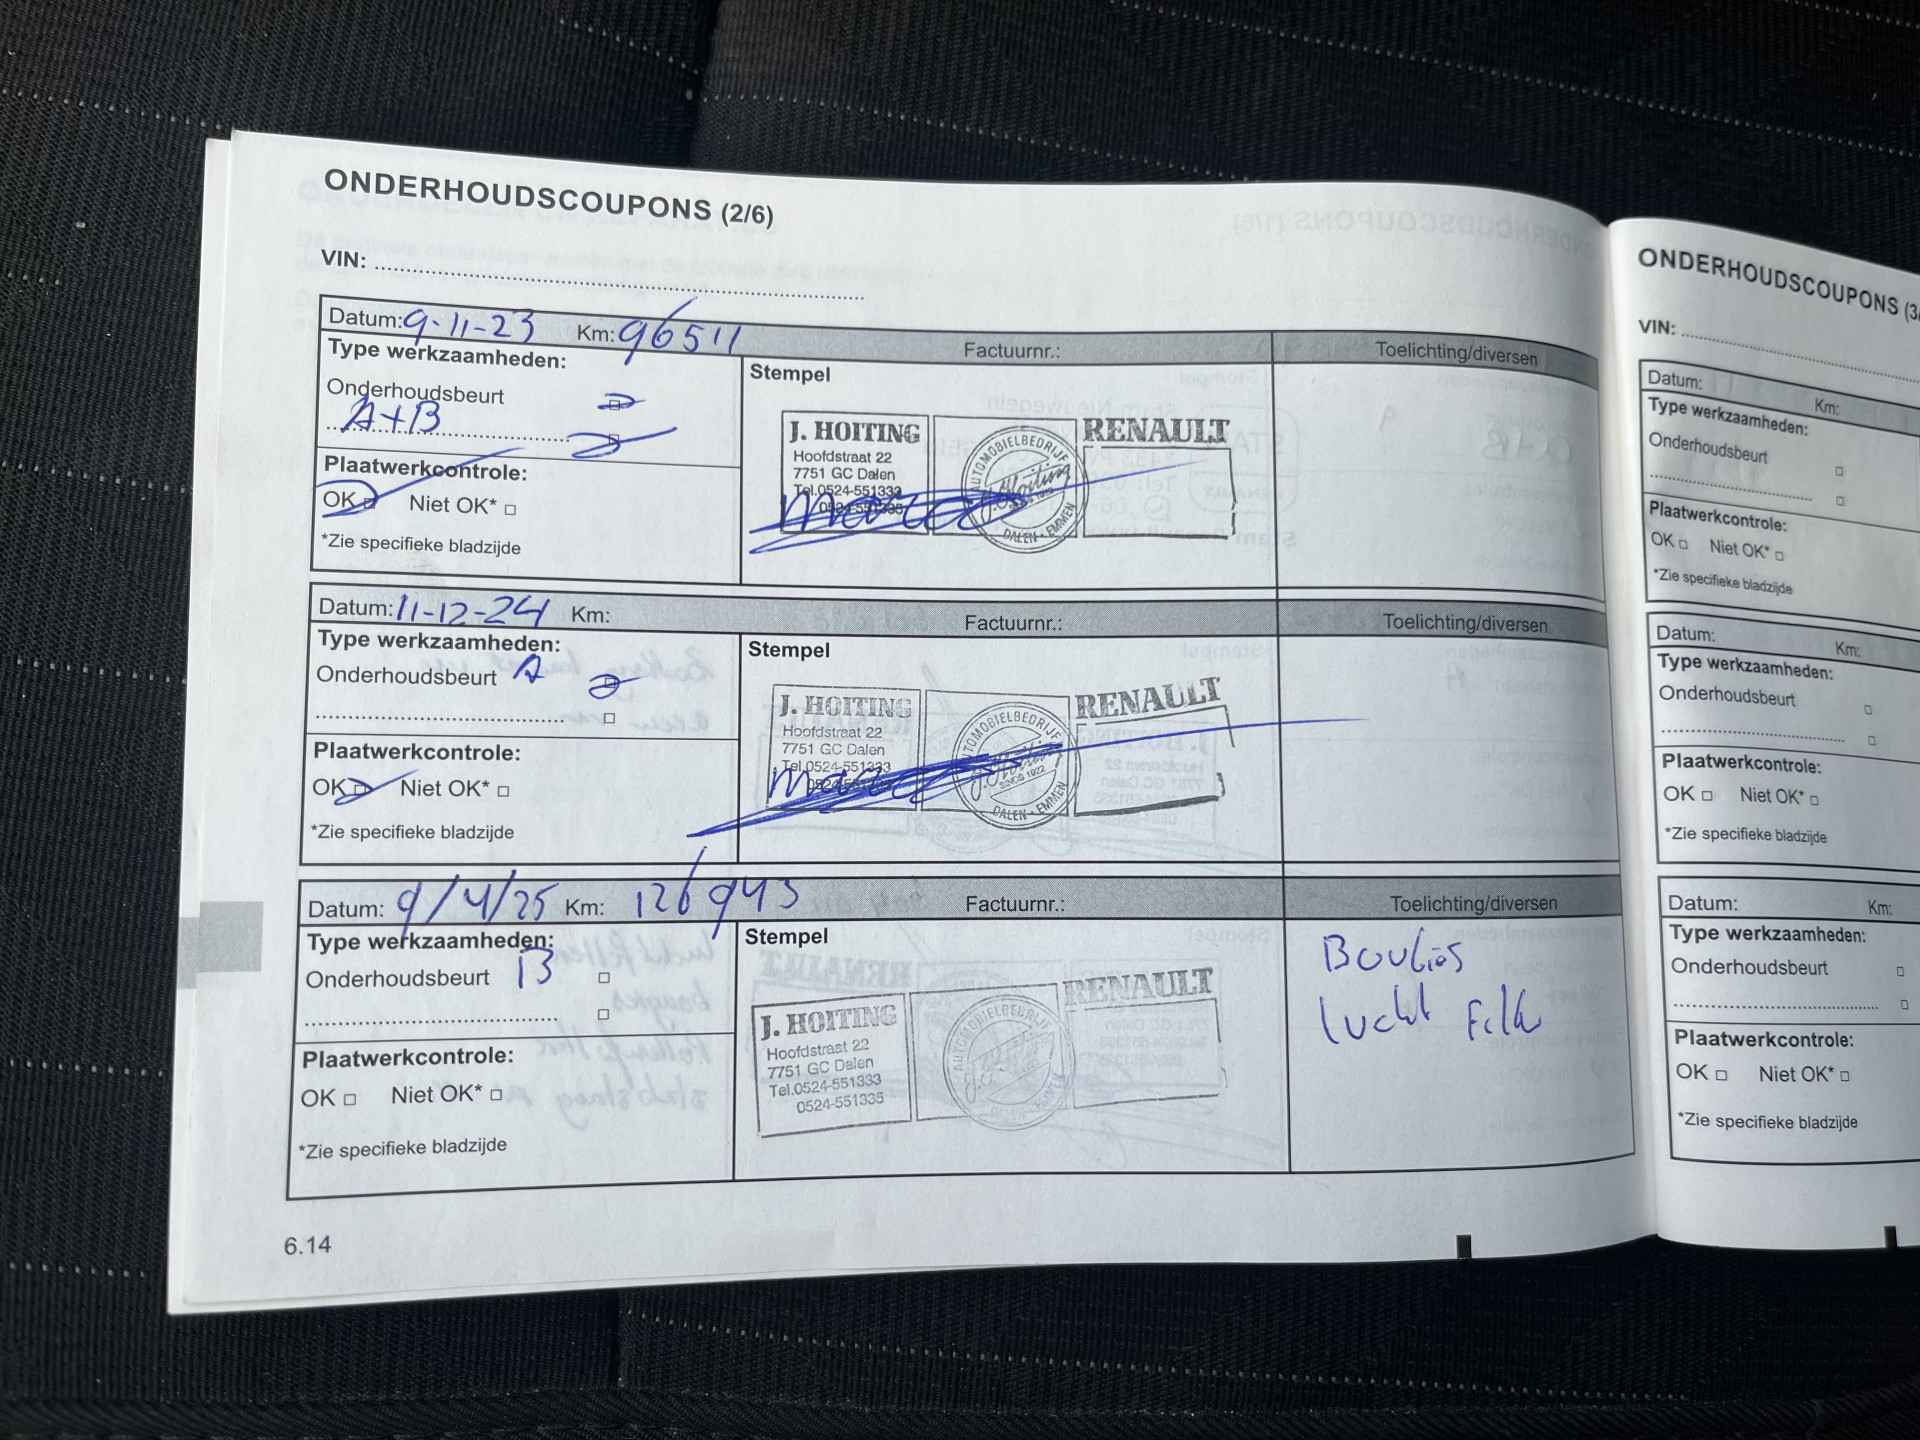 ONDERHOUDSCOUPONS (2/6)
VIN:
Datum: 9-11-23 Km: 96511 Factuurnr.: Toelichting/diversen
Type werkzaamheden:
Onderhoudsbeurt
A+B
Plaatwerkcontrole:
OK Niet OK*
*Zie specifieke bladzijde
Stempel
J. HOITING
Hoofdstraat 22
7751 GC Dalen
Tel.0524-551333
0524-551335
AUTOMOBIELBEDRIJF
J. Hoiting
DALEN - EMMEN
RENAULT
Datum: 11-12-24 Km: Factuurnr.: Toelichting/diversen
Type werkzaamheden:
Onderhoudsbeurt A
Plaatwerkcontrole:
OK Niet OK*
*Zie specifieke bladzijde
Stempel
J. HOITING
Hoofdstraat 22
7751 GC Dalen
Tel.0524-551333
0524-551335
AUTOMOBIELBEDRIJF
J. Hoiting
SINDS 1922
DALEN - EMMEN
RENAULT
Datum: 9/4/25 Km: 126943 Factuurnr.: Toelichting/diversen
Type werkzaamheden:
Onderhoudsbeurt B
Plaatwerkcontrole:
OK Niet OK*
*Zie specifieke bladzijde
Stempel
J. HOITING
Hoofdstraat 22
7751 GC Dalen
Tel.0524-551333
0524-551335
AUTOMOBIELBEDRIJF
RENAULT
Bougies
lucht Filter
6.14
ONDERHOUDSCOUPONS (3/
VIN:
Datum: Km:
Type werkzaamheden:
Onderhoudsbeurt
Plaatwerkcontrole:
OK Niet OK*
*Zie specifieke bladzijde
Datum: Km:
Type werkzaamheden:
Onderhoudsbeurt
Plaatwerkcontrole:
OK Niet OK*
*Zie specifieke bladzijde
Datum: Km:
Type werkzaamheden:
Onderhoudsbeurt
Plaatwerkcontrole:
OK Niet OK*
*Zie specifieke bladzijde